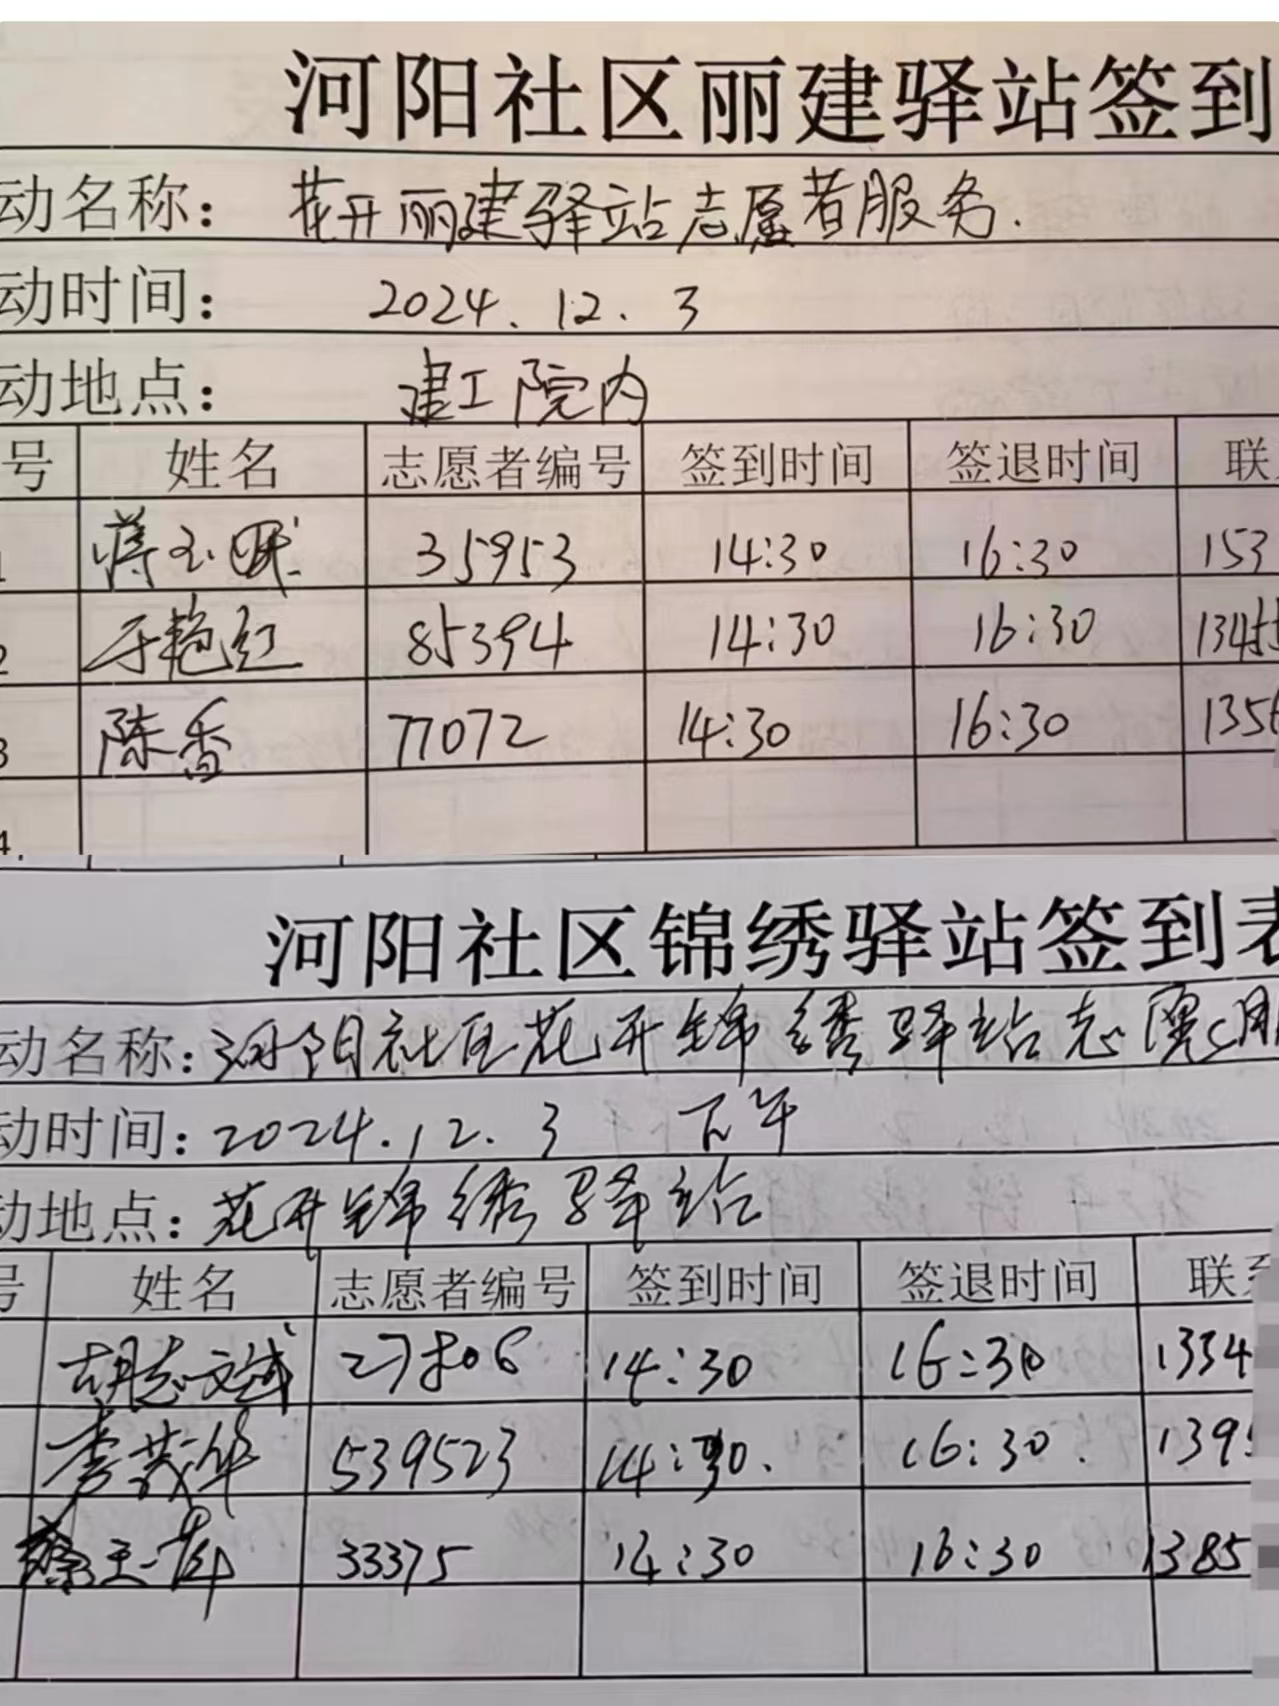 河阳社区丽建驿站签到
动名称：花开丽建驿站志愿者服务.
动时间：2024.12.3
动地点：建工院内
号 姓名 志愿者编号 签到时间 签退时间 联
1 蒋玉 35953 14:30 16:30 153
2 于艳红 85394 14:30 16:30 13455
3 陈香 77072 14:30 16:30 1356
4
河阳社区锦绣驿站签到表
动名称：河阳社区花开锦绣驿站志愿服
动时间：2024.12.3 下午
动地点：花开锦绣驿站
号 姓名 志愿者编号 签到时间 签退时间 联系
胡志斌 27806 14:30 16:30 1334
李茂华 539523 14:30. 16:30. 139
33375 14:30 16:30 1385